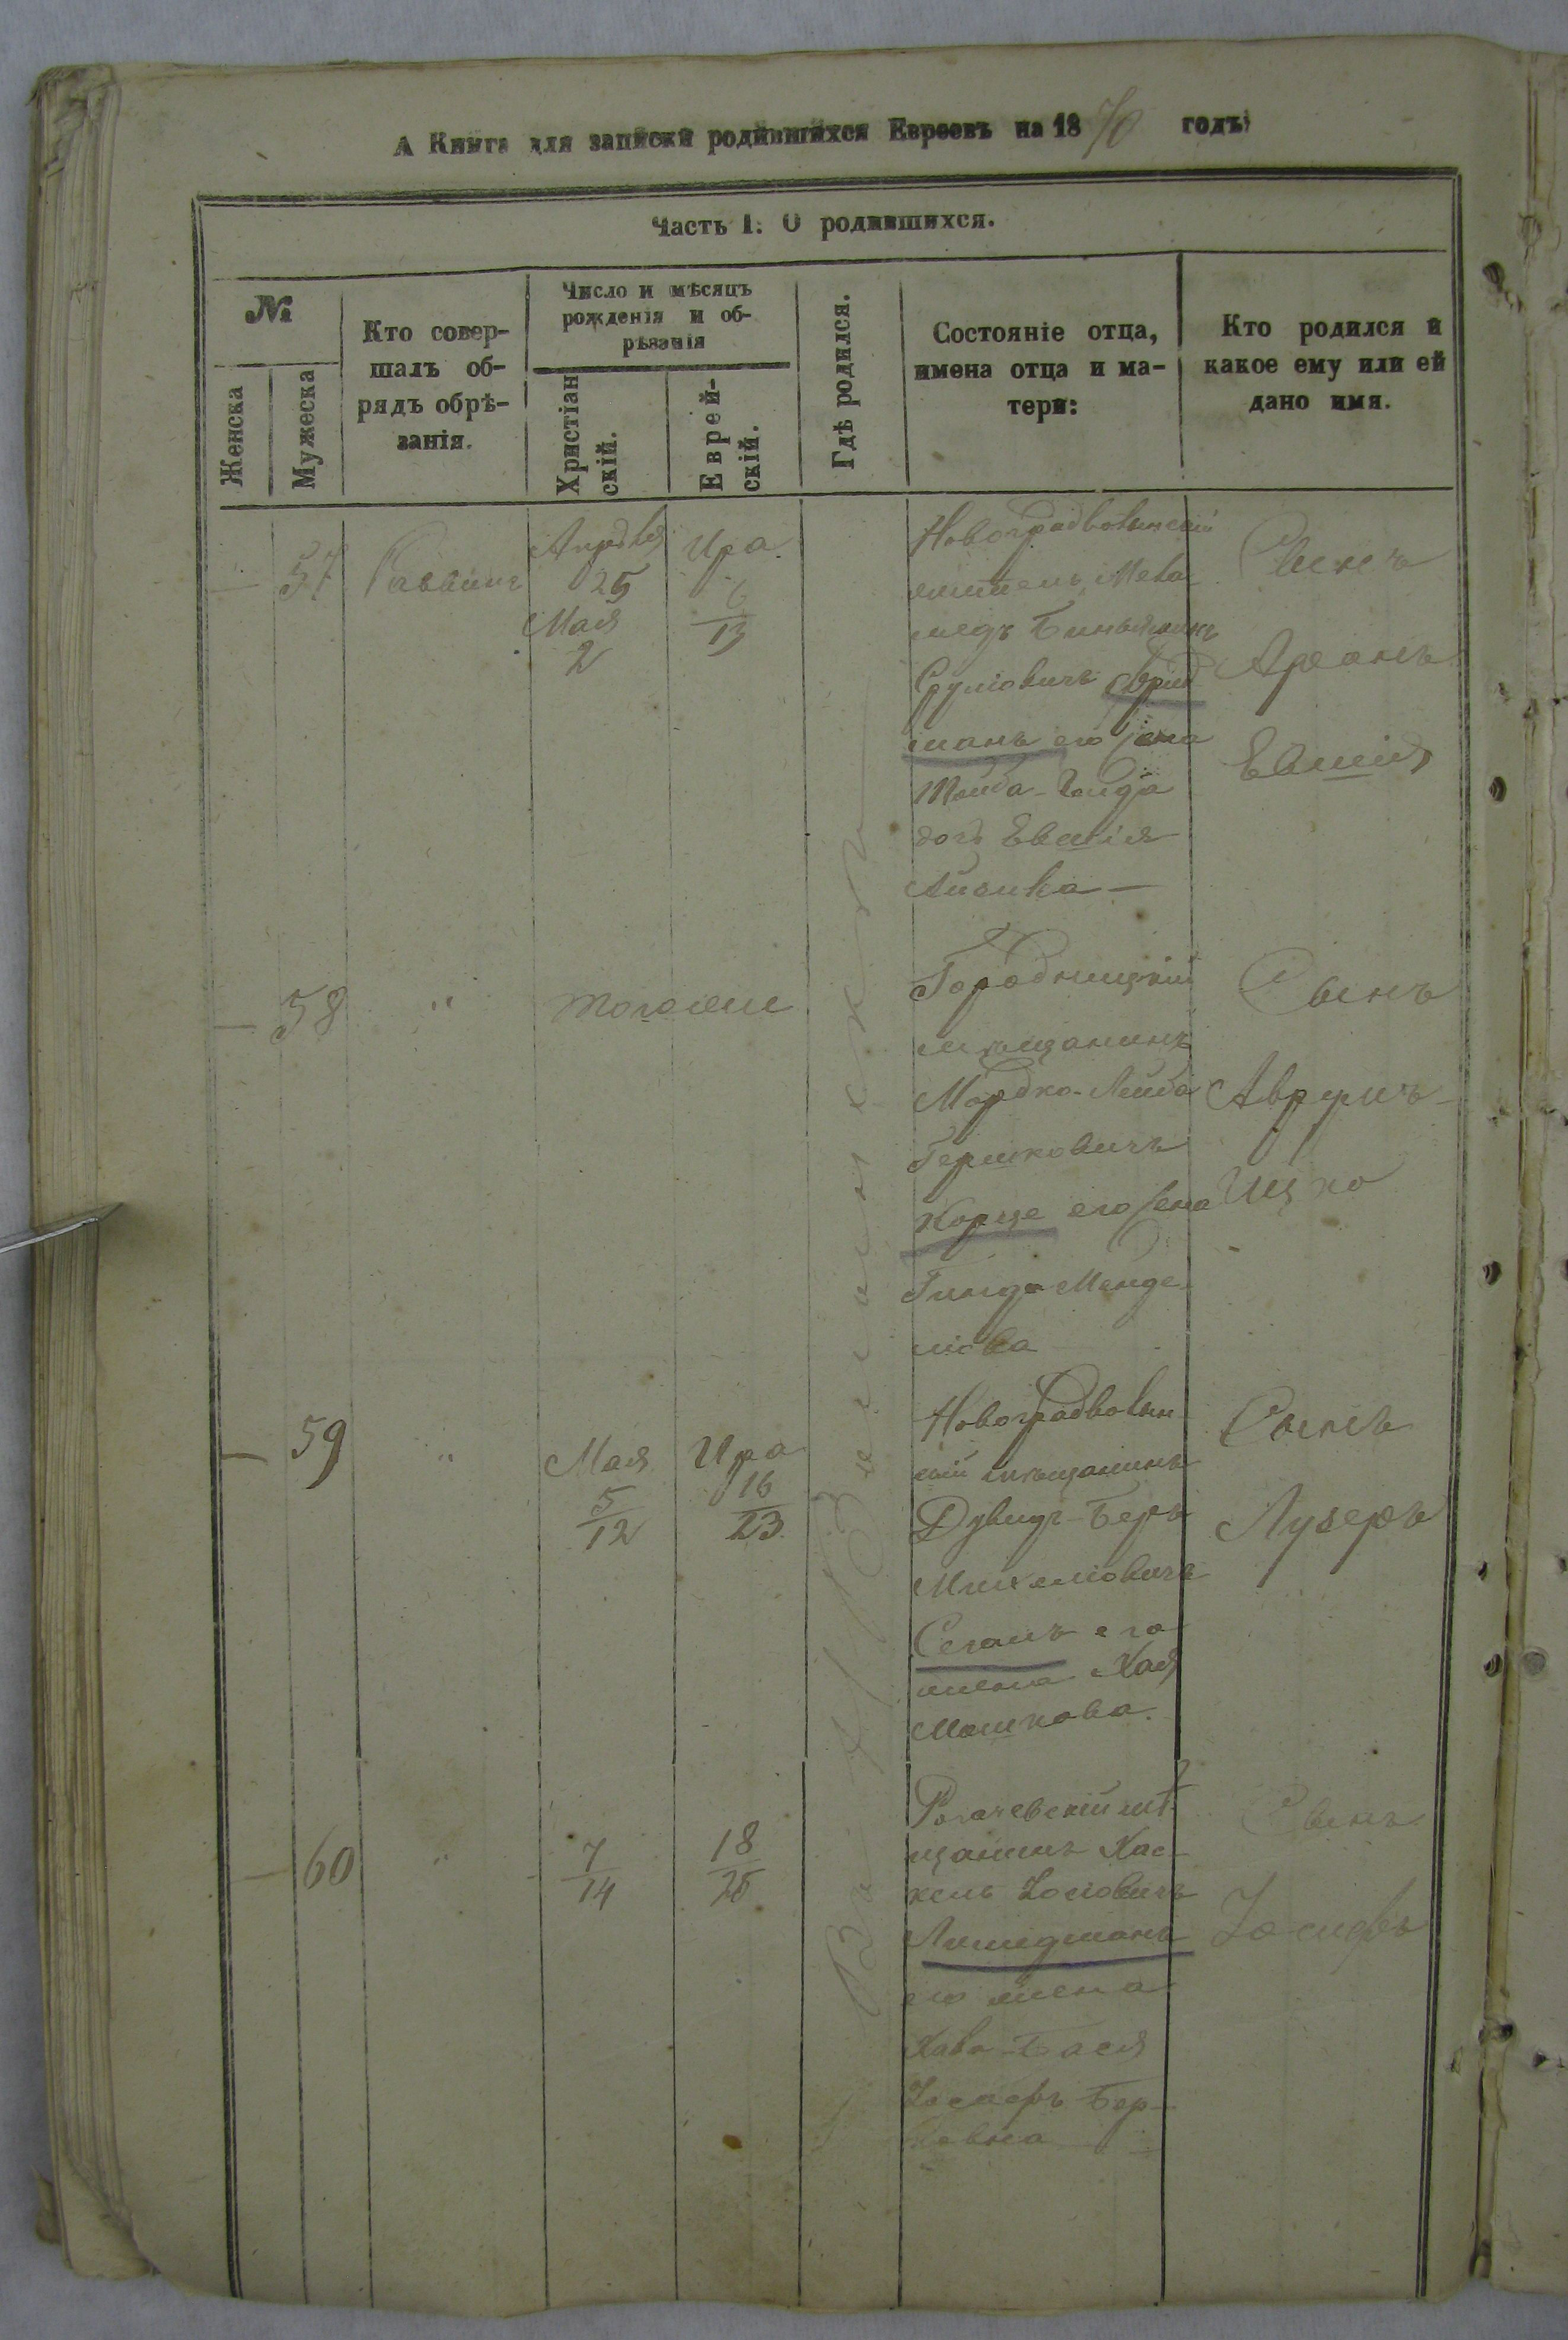 А Книга для записки родившихся Евреевъ на 1870 годъ
Часть I. О родившихся.
№
Женска
Мужеска
Кто совер-
шалъ об-
рядъ обрѣ-
занія.
Число и мѣсяцъ
рожденія и об-
рѣзанія
Христіан
скій.
Еврей-
скій.
Гдѣ родился.
Состояніе отца,
имена отца и ма-
тери:
Кто родился и
какое ему или ей
дано имя.
57
Раввинъ
Апрѣля
25
Мая
2
Ира
6
13
Новоградволынскій
Мела
медъ Биньяминъ
Сруліовичъ Фрид
манъ его жена
дочь
Айзика
Сынъ
Аронъ
58
"
тогоже
Городницкій
мѣщанинъ
Мордко-Лейба
Гершковичъ
Корце его жена
Менде
ліова
Сынъ
Аврумъ
Ицко
59
"
Мая
5
12
Ира
16
23
Новоградволын
скій мѣщанинъ
Дувидъ-Беръ
Михеліовичъ
Сегалъ его
жена Хая
Мошкова.
Сынъ
Лузеръ
60
"
7
14
18
25
Рогачевскій мѣ
щанинъ Хас
кель Іосіовичъ
его жена
Хава-Бася
Іосифъ Бер
Сынъ
Іосифъ